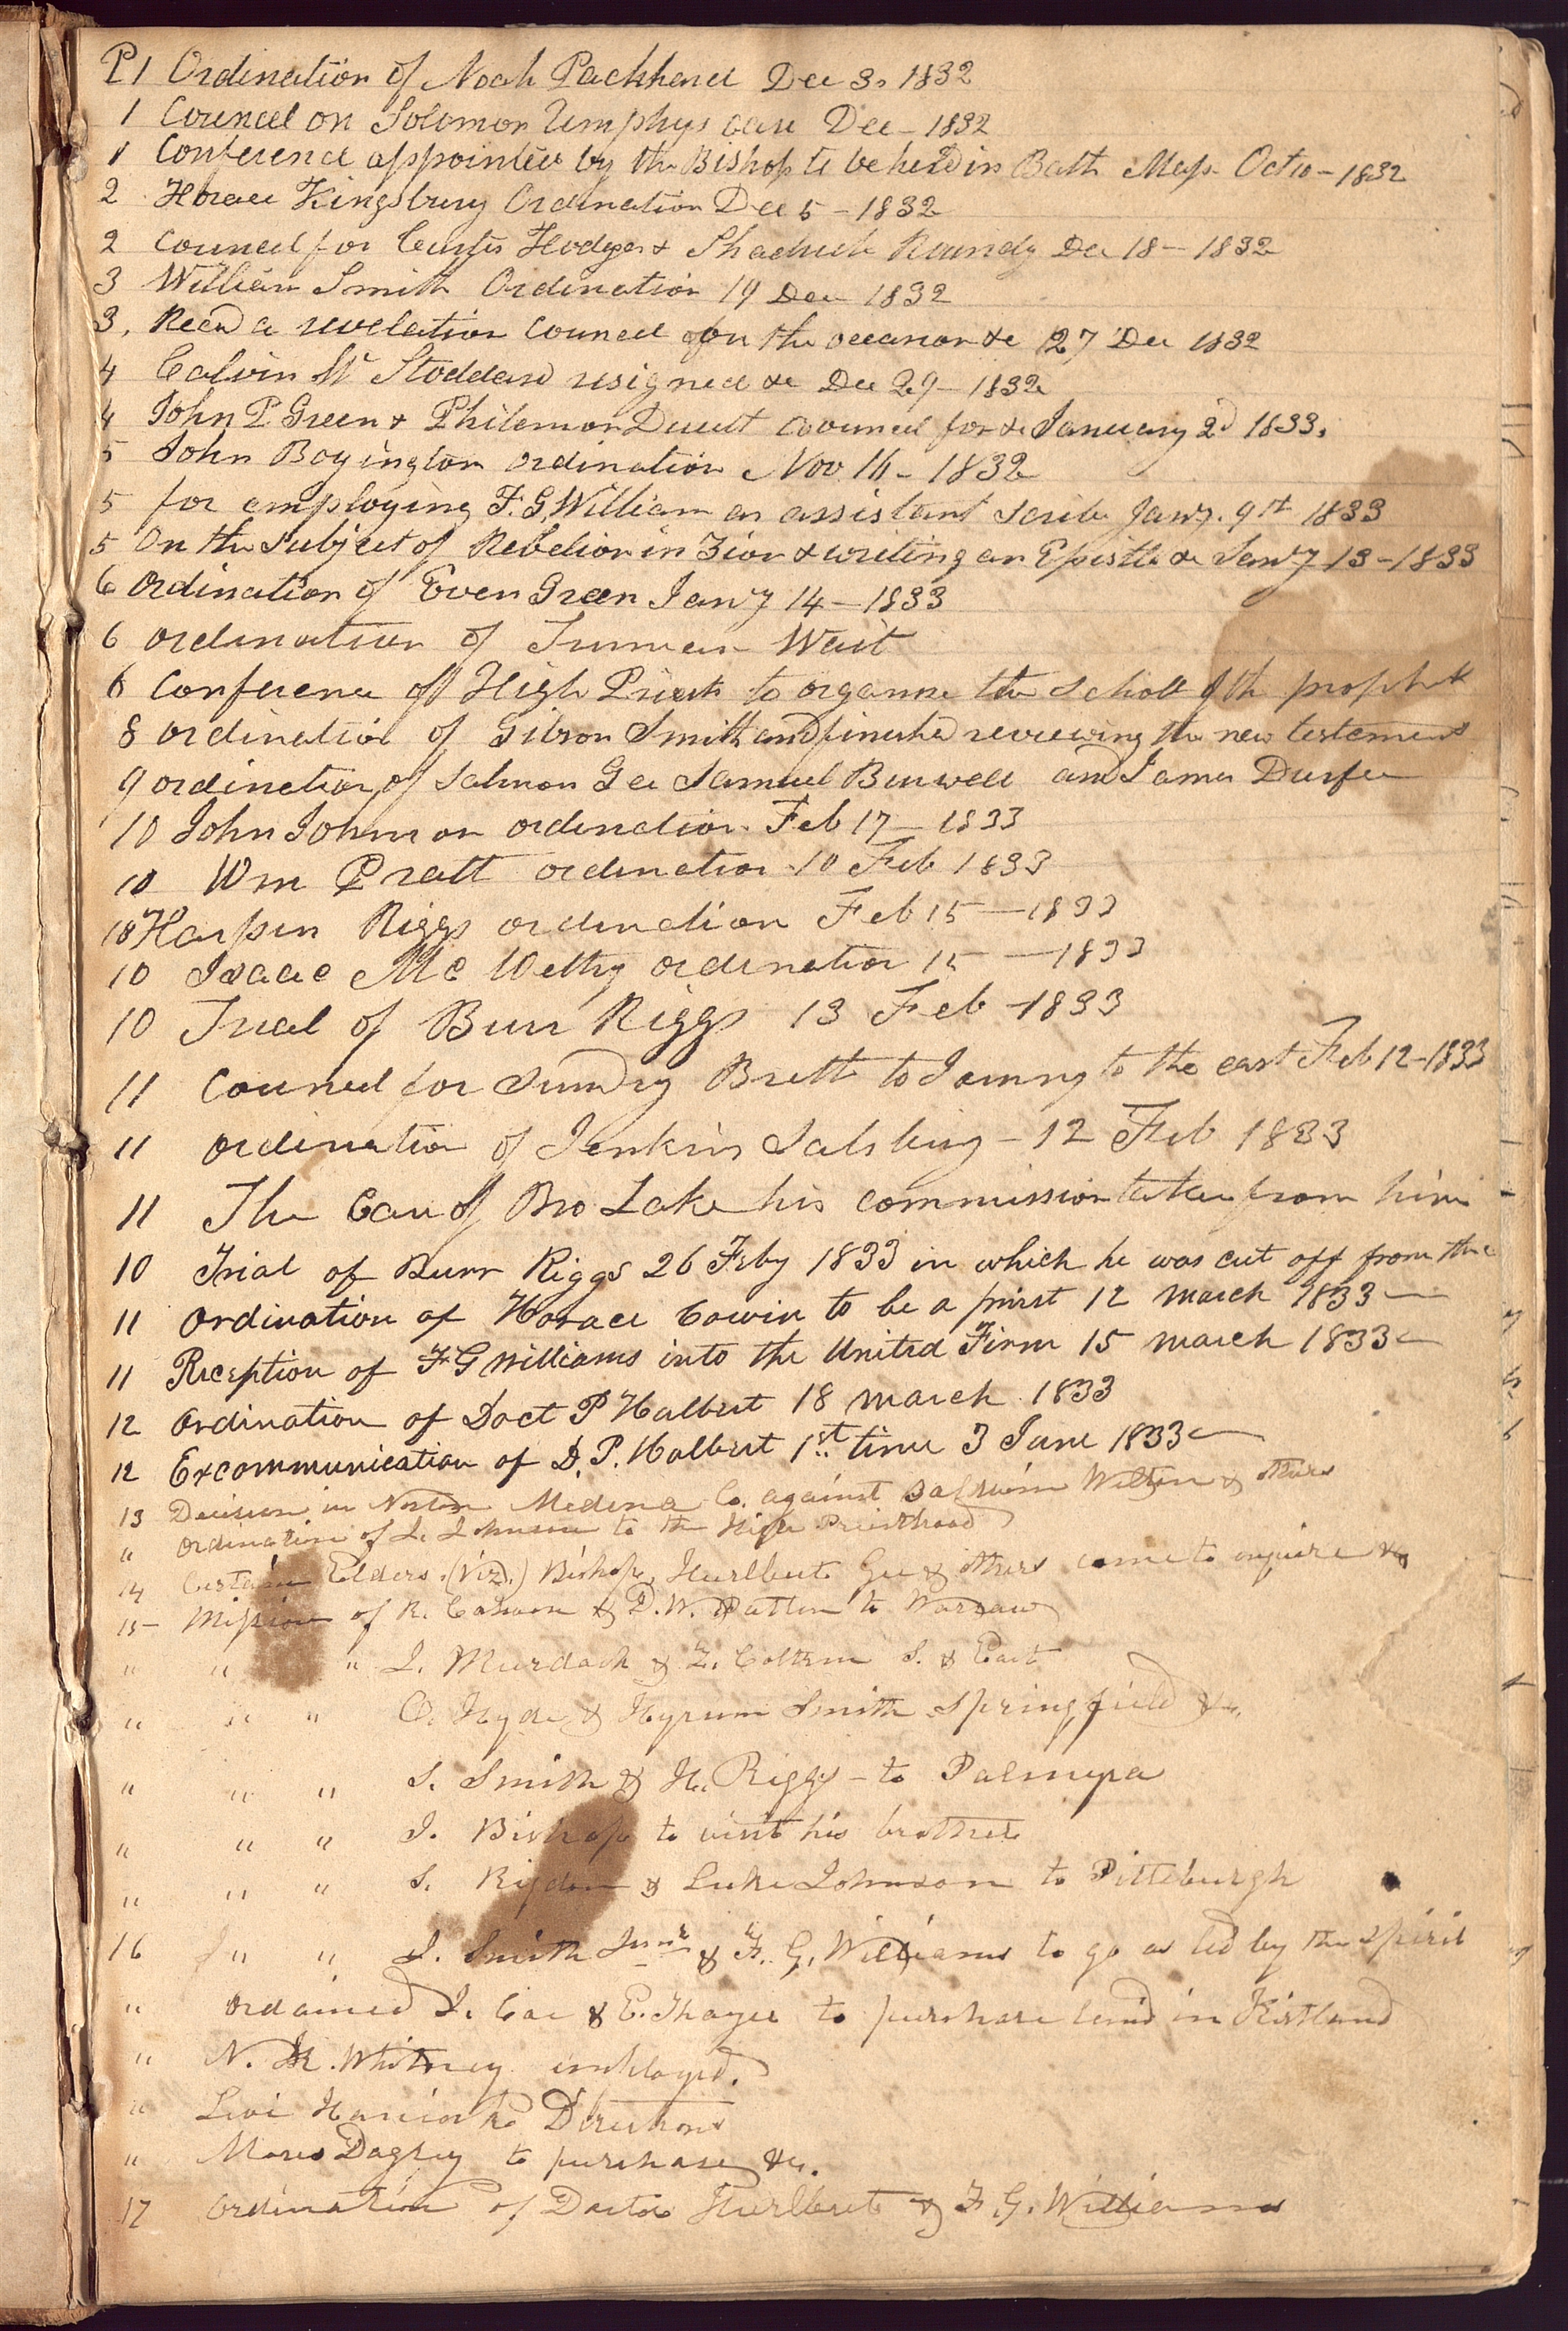 P1 Ordination of Noah Packhard Dec 3. 1832
1 Councel on Solomon Umphys case Dec – 1832
1 Conference appointed by the Bishop to be held in Bath Mass Oct 10 – 1832
2 Horace Kingsbury Ordination Dec 5 – 1832
2 Councel for Curtis Hodges & Shadrick Roundy Dec 18 – 1832
3 William Smith Ordination 19 Dec 1832
3. Recd a revelation Councel for the occasion &c 27 Dec 1832
4 Calvin W Stoddard resigned &c Dec 29 – 1832
4 John P Green & Philemon Duzett councel for &c January 2d 1833.
5 John Boyington ordination Nov. 16 – 1832
5 for employing F. G. William as assistant scribe Jany. 9th 1833
5 On the subject of Rebelion in Zion & writing an Epistle &c Jany 13 – 1833
6 Ordination of Even Green Jany 14 – 1833
6 ordination of Truman Wait
6 Conference of High Priests to organise the school of the prophets
8 ordination of Gibson Smith and finished reviewing the new testement
9 ordination of Salmon Gee Samuel Burwell and James Durfee
10 John Johnson ordination Feb 17 – 1833
10 Wm Pratt ordination 10 Feb 1833
10 Harpen Riggs ordination Feb 15 — 1833
10 Isaac Mc Wethy ordination 15 — 1833
10 Trial of Burr Riggs 13 Feb – 1833
11 Councel for Sundry Breth to Journy to the east Feb 12 – 1833
11 ordination of Jenkins Salsbury – 12 Feb 1833
11 The Case of Bro Lake his commission taken from him
10 Trial of Burr Riggs 26 Feby 1833 in which he was cut off from the
11 Ordination of Horace Cowin to be a priest 12 march 1833 —
11 Reception of F G Williams into the United Firm 15 march 1833 –
12 Ordination of Doct P Halbert 18 march 1833
12 Excommunication of D. P. Halbert 1st time 3 June 1833 —
13 Decision in Norton Medina Co. against Baldwin Welton & others
" Ordination of J. Johnson to the High Priesthood
14 Certain Elders. (viz.) Bishop, Hurlbut Gee & others came to enquire &c
15 – Mission of R. Cahoon & D. W. Patten to Warsaw
" " " J. Murdock & Z. Coltrin S. & East
" " " O. Hyde & Hyrum Smith Springfield &c.
" " " S. Smith & H. Riggs – to Palmyra
" " " J. Bishop to visit his brother
" " " S. Rigdon & Luke Johnson to Pittsburgh
16 " " J. Smith Junr & F. G. Williams to go as led by the spirit
" Ordained J. Coe & E. Thayer to purchase land in Kirtland
" N. K. Whitney employed.
" Levi Hancocks Directions
" Moses Dagley to purchase &c.
17 Ordination of Doctor Hurlbut & F. G. Williams